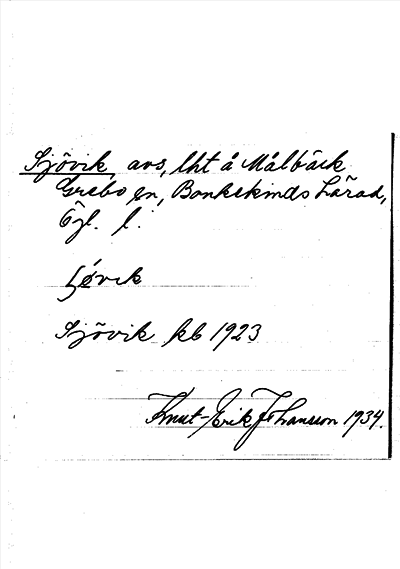 Sjövik, avs, lht å Målbäck
Grebo sn, Bankekinds härad,
Ögl. l.
Sjövik kb 1923
Knut-Erik Johansson 1934.